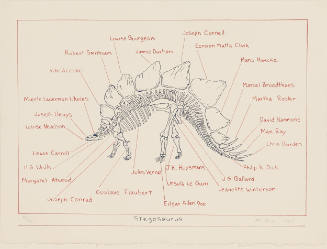 Joseph Cornell
Louise Bourgeois
Jimmie Durham
Gordon Matta Clark
Robert Smithson
Hans Haacke
Vito Acconci
Marcel Broodthaers
Mierle Laderman Ukeles
Martha Rosler
Joseph Beuys
David Hammons
Louise Nevelson
Man Ray
Chris Burden
Lewis Carroll
Jules Verne
J.K. Huysmans
Philip K. Dick
Ursula Le Guin
J.G. Ballard
Margaret Atwood
Gustave Flaubert
Jeanette Winterson
Joseph Conrad
Edgar Allan Poe
Stegosaurus